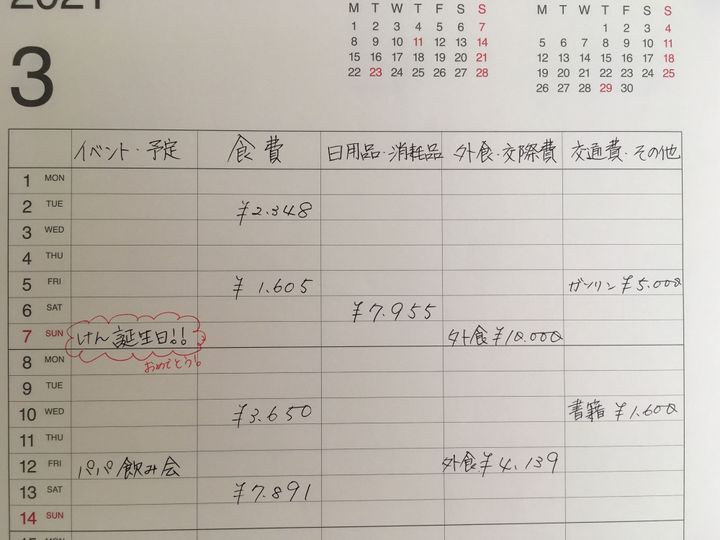 3
M T W T F S S
1 2 3 4 5 6 7
8 9 10 11 12 13 14
15 16 17 18 19 20 21
22 23 24 25 26 27 28
M T W T F S S
1 2 3 4
5 6 7 8 9 10 11
12 13 14 15 16 17 18
19 20 21 22 23 24 25
26 27 28 29 30
イベント・予定 食費 日用品・消耗品 外食・交際費 交通費・その他
1 MON
2 TUE ¥2.348
3 WED
4 THU
5 FRI ¥1.605 ガソリン ¥5.000
6 SAT ¥7.955
7 SUN けん誕生日!! 外食 ¥10.000
おめでとう!
8 MON
9 TUE
10 WED ¥3.650 書籍 ¥1.600
11 THU
12 FRI パパ飲み会 外食 ¥4.139
13 SAT ¥7.891
14 SUN